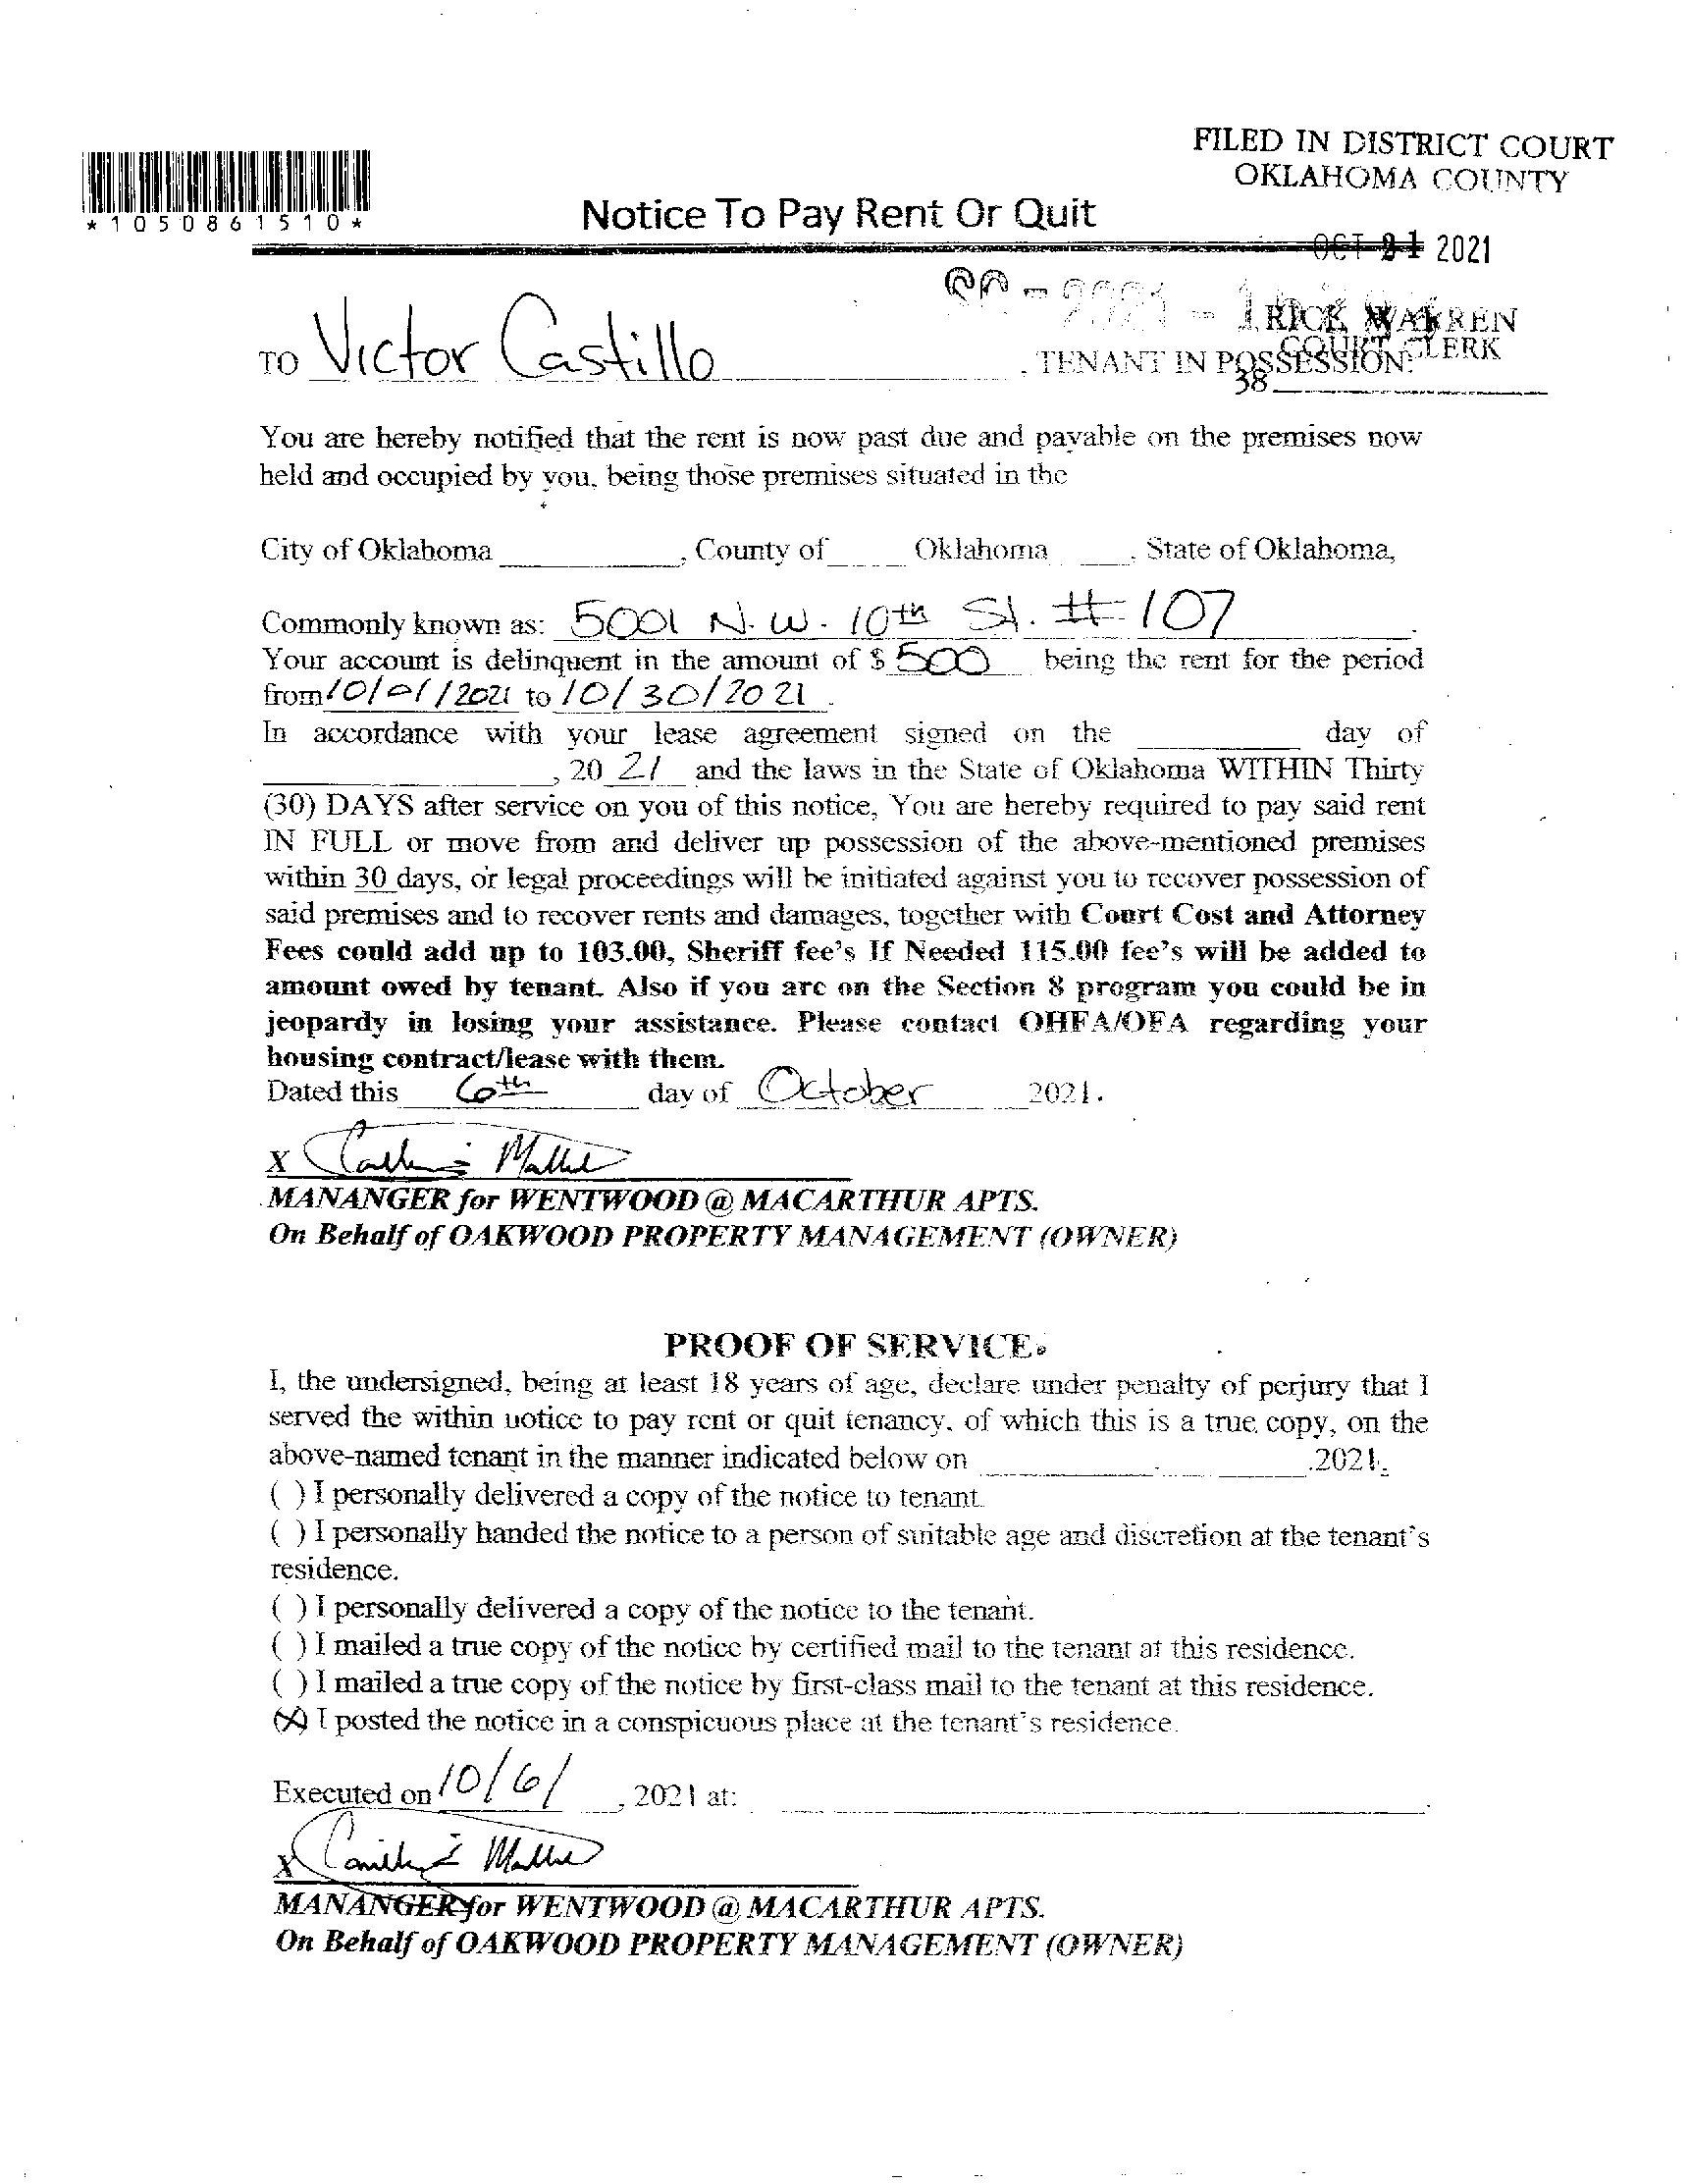 FILED IN DISTRICT COURT
OKLAHOMA COUNTY
*1050861510*
Notice To Pay Rent Or Quit
OCT 21 2021
RICK WARREN
COURT CLERK
38
TO Victor Castillo , TENANT IN POSSESSION:
You are hereby notified that the rent is now past due and payable on the premises now
held and occupied by you, being those premises situated in the
City of Oklahoma , County of Oklahoma , State of Oklahoma,
Commonly known as: 5001 N.W. 10th St. #107
Your account is delinquent in the amount of $ 500 being the rent for the period
from 10/01/2021 to 10/30/2021 .
In accordance with your lease agreement signed on the ________ day of
________, 20 21 and the laws in the State of Oklahoma WITHIN Thirty
(30) DAYS after service on you of this notice, You are hereby required to pay said rent
IN FULL or move from and deliver up possession of the above-mentioned premises
within 30 days, or legal proceedings will be initiated against you to recover possession of
said premises and to recover rents and damages, together with Court Cost and Attorney
Fees could add up to 103.00, Sheriff fee's If Needed 115.00 fee's will be added to
amount owed by tenant. Also if you are on the Section 8 program you could be in
jeopardy in losing your assistance. Please contact OHFA/OFA regarding your
housing contract/lease with them.
Dated this 6th day of October 2021.
X
MANANGER for WENTWOOD @ MACARTHUR APTS.
On Behalf of OAKWOOD PROPERTY MANAGEMENT (OWNER)
PROOF OF SERVICE.
I, the undersigned, being at least 18 years of age, declare under penalty of perjury that I
served the within notice to pay rent or quit tenancy, of which this is a true copy, on the
above-named tenant in the manner indicated below on ________.2021.
( ) I personally delivered a copy of the notice to tenant.
( ) I personally handed the notice to a person of suitable age and discretion at the tenant's
residence.
( ) I personally delivered a copy of the notice to the tenant.
( ) I mailed a true copy of the notice by certified mail to the tenant at this residence.
( ) I mailed a true copy of the notice by first-class mail to the tenant at this residence.
(X) I posted the notice in a conspicuous place at the tenant's residence.
Executed on 10/6/ , 2021 at: ________.
X
MANANGER for WENTWOOD @ MACARTHUR APTS.
On Behalf of OAKWOOD PROPERTY MANAGEMENT (OWNER)